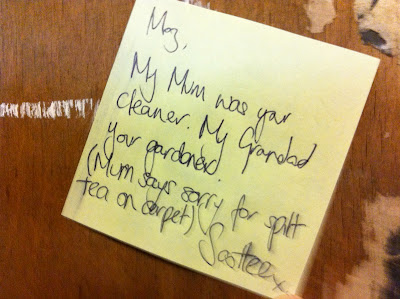 Moz,
My Mum was your
cleaner. My Grandad
your gardener.
(Mum says sorry for spilt
tea on carpet)